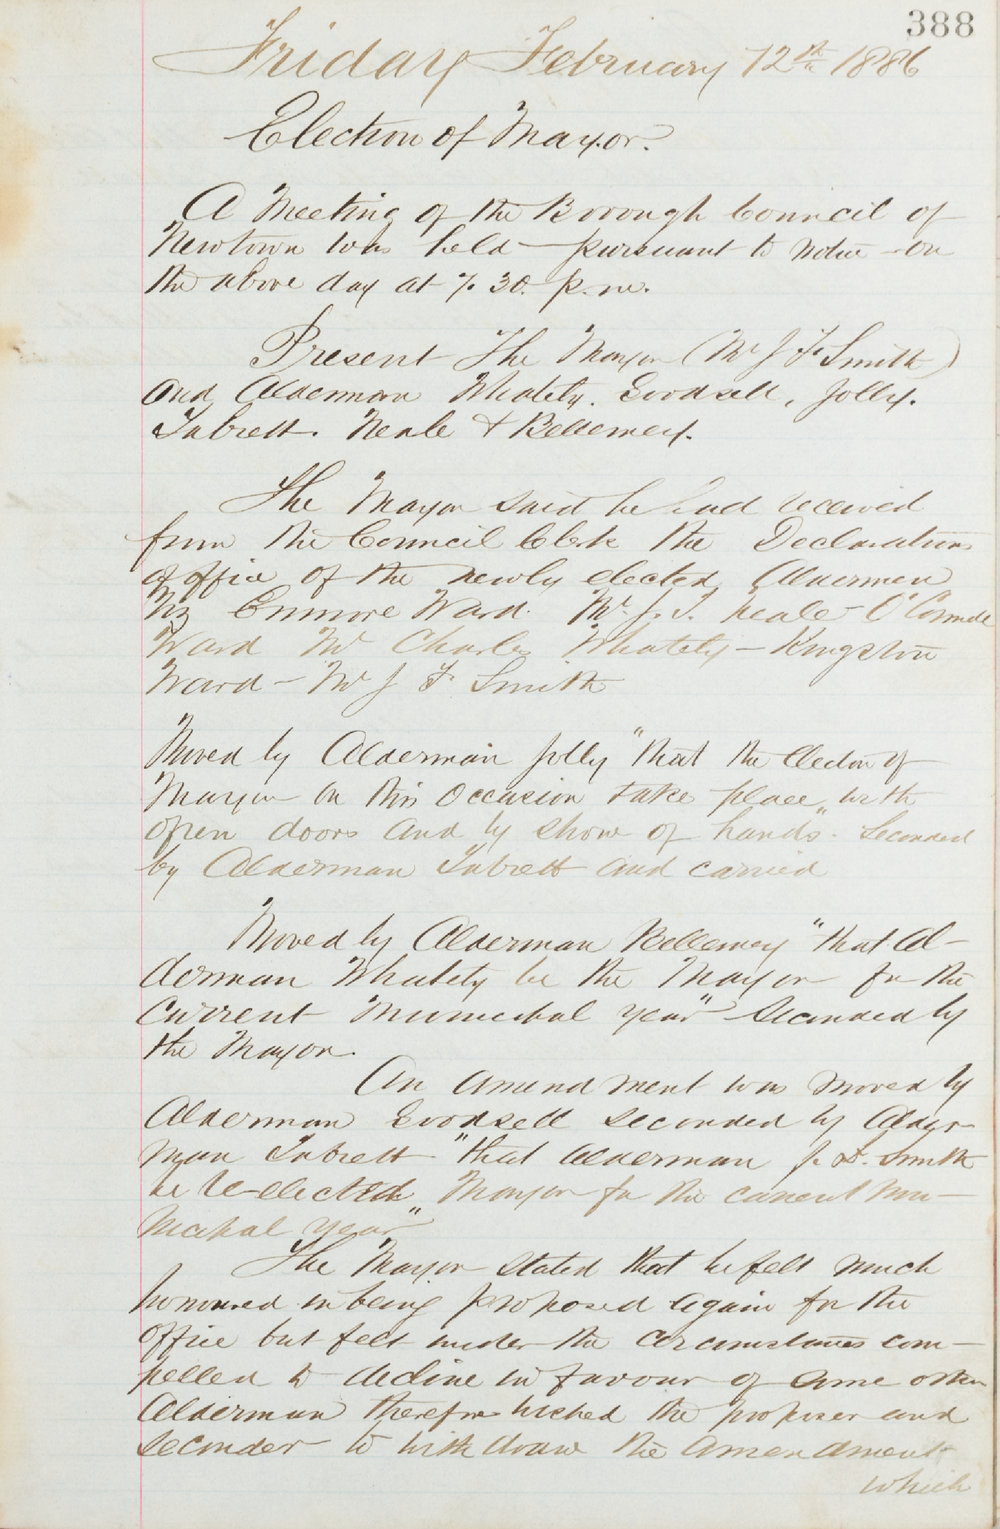 388
Friday February 12th 1886
Election of Mayor.
A Meeting of the Borough Council of
Newtown was held pursuant to notice on
the above day at 7.30. p.m.
Present The Mayor (Mr J F Smith)
and Aldermen Whately. Goodsell, Jolly.
Tabrett. Neale & Bellemey.
The Mayor said he had received
from the Council Clerk the Declarations
of office of the newly elected Aldermen
Viz Enmore Ward. Mr. J. T. Neale - O'Connell
Ward Mr Charles Whately - Kingston
Ward - Mr J F. Smith
Moved by Alderman Jolly "that the Election of
Mayor on this occasion take place with
open doors and by show of hands". Seconded
by Alderman Tabrett and carried
Moved by Alderman Bellemey "that Al-
derman Whately be the Mayor for the
current Municipal year" Seconded by
the Mayor.
An amendment was moved by
Alderman Goodsell seconded by Alder
man Tabrett "that Alderman J. F. Smith
be re-elected Mayor for the current Mu-
nicipal year"
The Mayor stated that he felt much
honoured in being proposed again for the
office but felt under the circumstances com-
pelled to decline in favour of some other
Alderman therefore wished the proposer and
seconder to withdraw the amendment
which